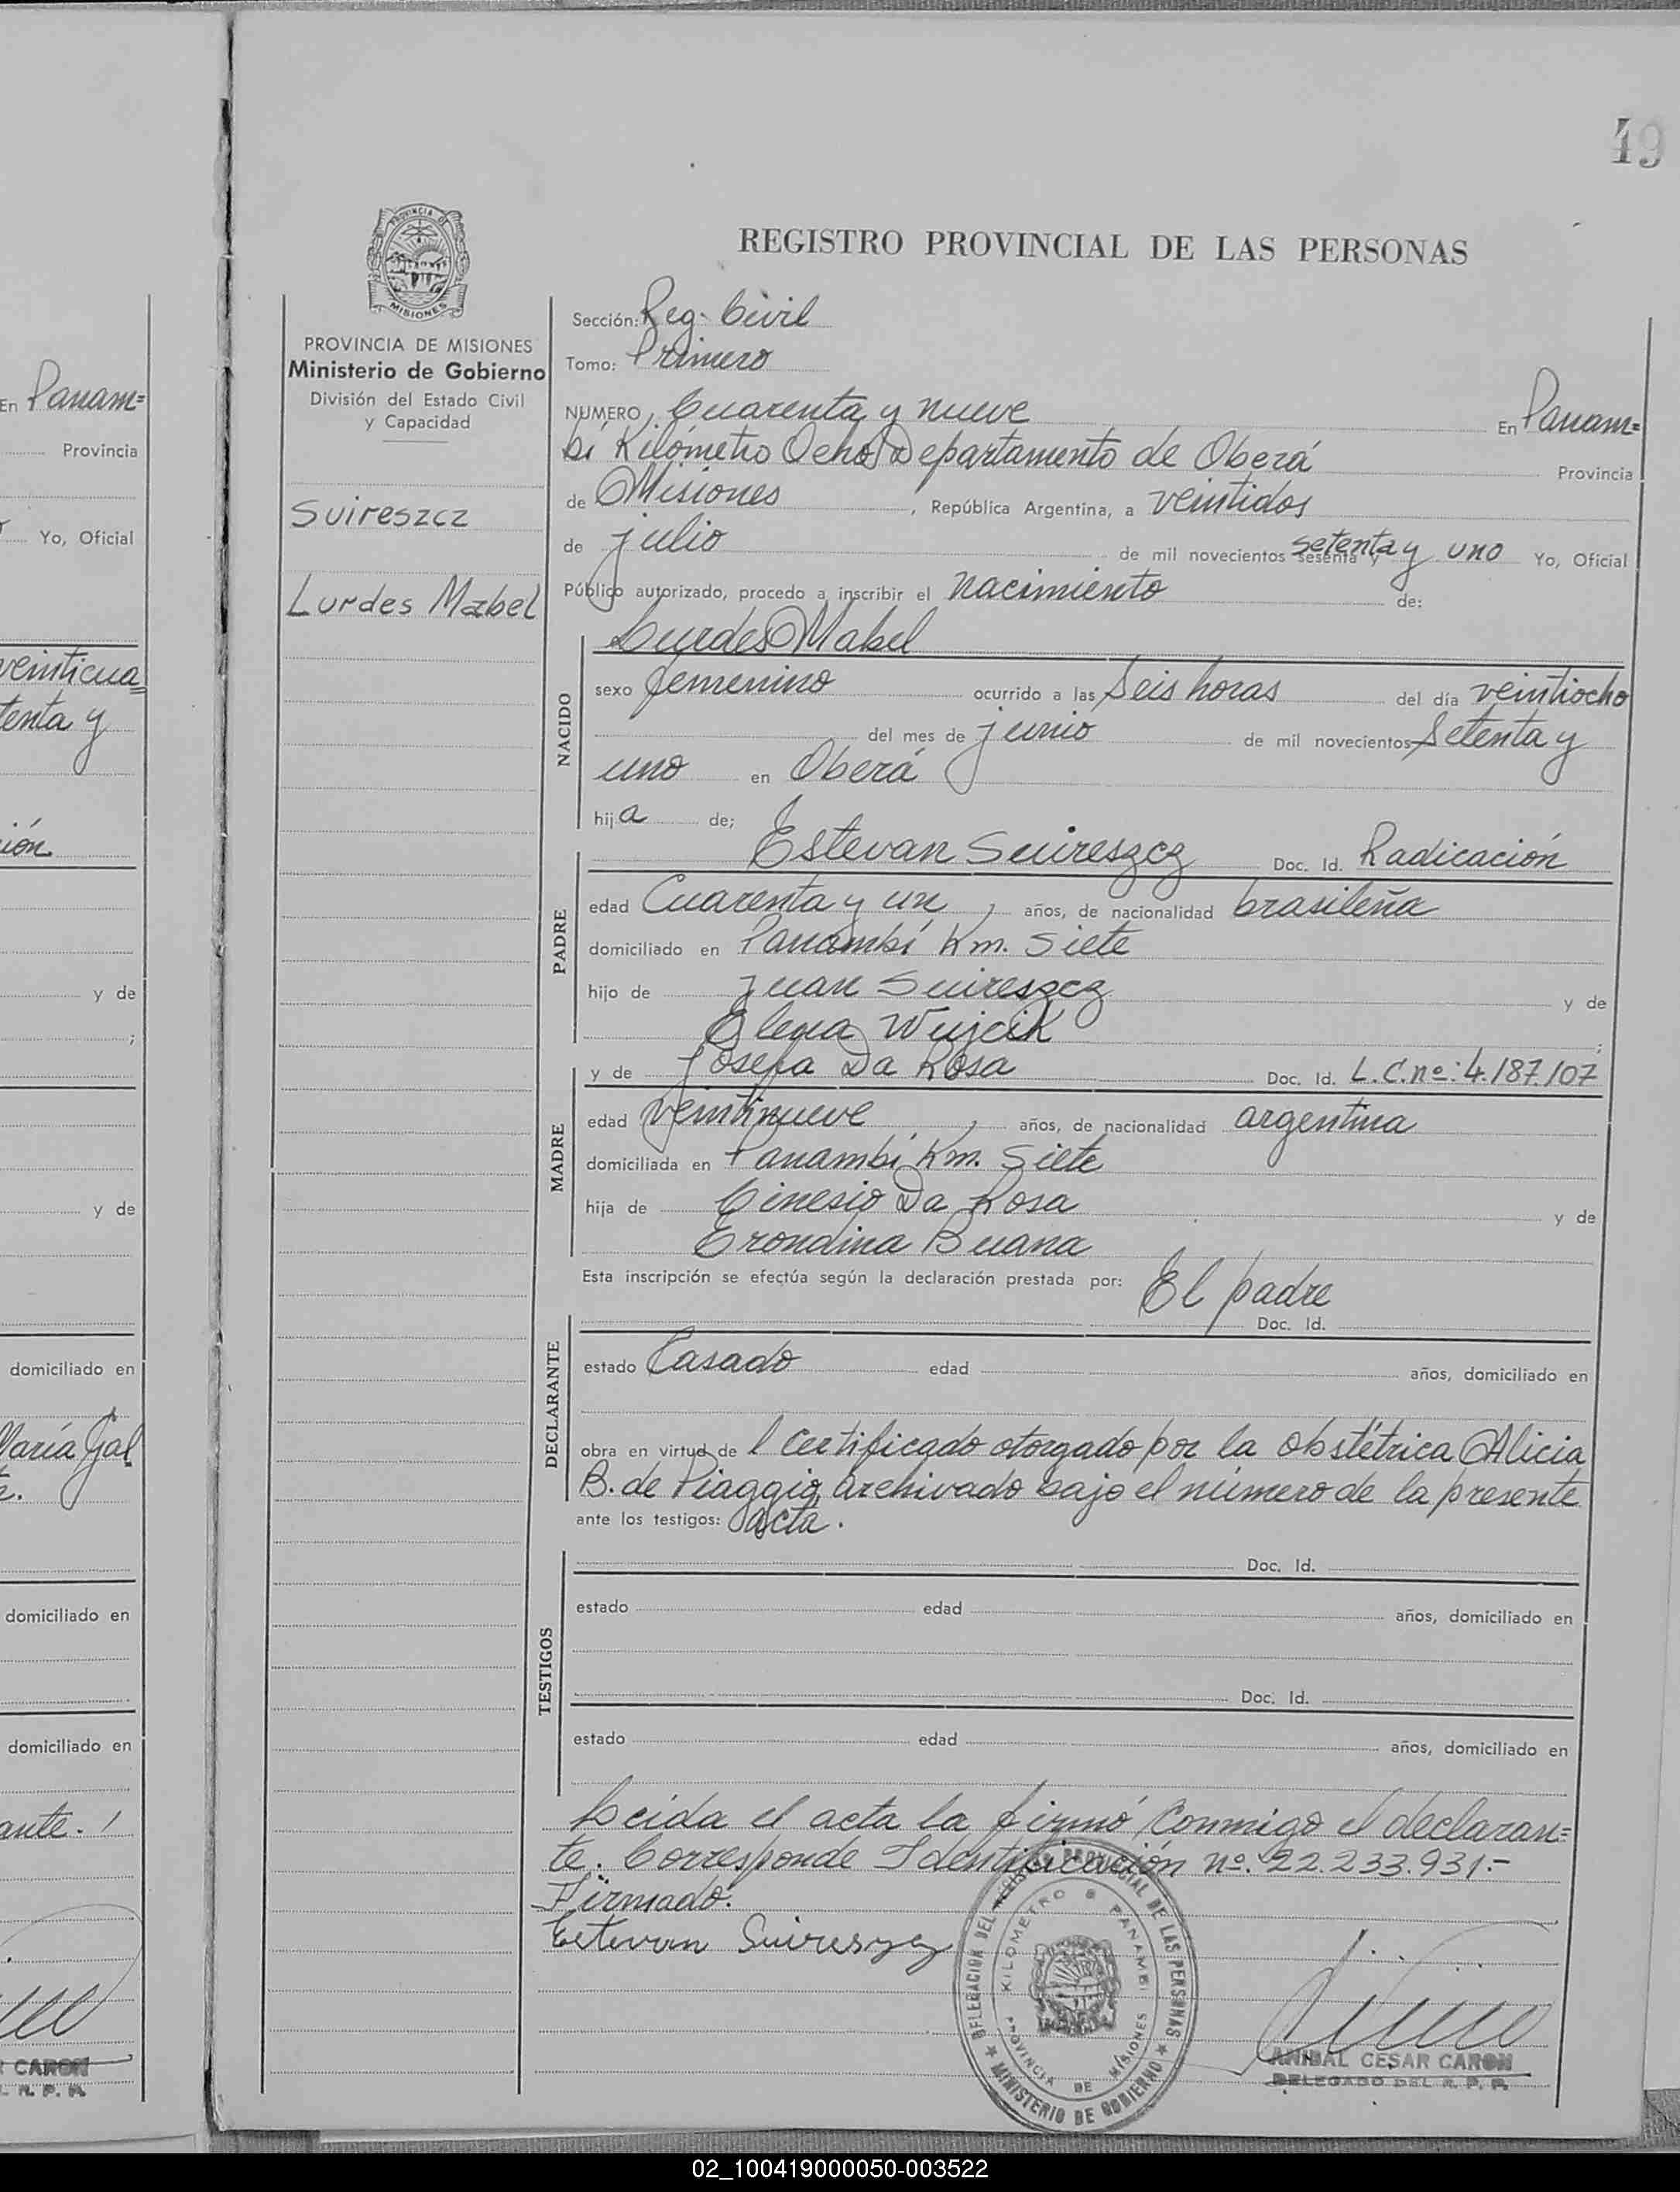 49
REGISTRO PROVINCIAL DE LAS PERSONAS
PROVINCIA DE MISIONES
Ministerio de Gobierno
División del Estado Civil
y Capacidad
Suireszcz
Lurdes Mabel
Sección: Reg. Civil
Tomo: Primero
NUMERO, Cuarenta y nueve En Panam=
bí Kilómetro Ocho Departamento de Oberá Provincia
de Misiones, República Argentina, a veintidos
de julio de mil novecientos sesenta y setenta y uno Yo, Oficial
Público autorizado, procedo a inscribir el nacimiento de:
Lurdes Mabel
NACIDO
sexo femenino ocurrido a las Seis horas del día veintiocho
del mes de junio de mil novecientos Setenta y
uno en Oberá
hija de;
Estevan Suireszcz Doc. Id. Radicación
PADRE
edad Cuarenta y un, años, de nacionalidad brasileña
domiciliado en Panambí Km. Siete
hijo de Juan Suireszcz y de
Elena Wujcik;
y de Josefa Da Rosa Doc. Id. L.C.nº:4.187.107
MADRE
edad Veintinueve, años, de nacionalidad argentina
domiciliada en Panambí Km. Siete
hija de Cinesio Da Rosa y de
Erondina Buana
Esta inscripción se efectúa según la declaración prestada por: El padre
Doc. Id.
DECLARANTE
estado Casado edad años, domiciliado en
obra en virtud de l Certificado otorgado por la obstétrica Alicia
B. de Piaggio archivado bajo el número de la presente
ante los testigos: acta.
Doc. Id.
TESTIGOS
estado edad años, domiciliado en
Doc. Id.
estado edad años, domiciliado en
Leida el acta la firmó Conmigo el declaran=
te. Corresponde Identificación nº. 22.233.931.-
Firmado:
Estevan Suireszcz
DELEGACION DEL REGISTRO PROVINCIAL DE LAS PERSONAS
KILOMETRO 8 PANAMBI
PROVINCIA DE MISIONES
MINISTERIO DE GOBIERNO
ANIBAL CESAR CARON
DELEGADO DEL R. P. P.
En Panam=
Provincia
Yo, Oficial
veinticua=
tenta y
ión
y de
;
y de
domiciliado en
María Gal
domiciliado en
domiciliado en
ante.
CARON
R. P. P.
02_100419000050-003522